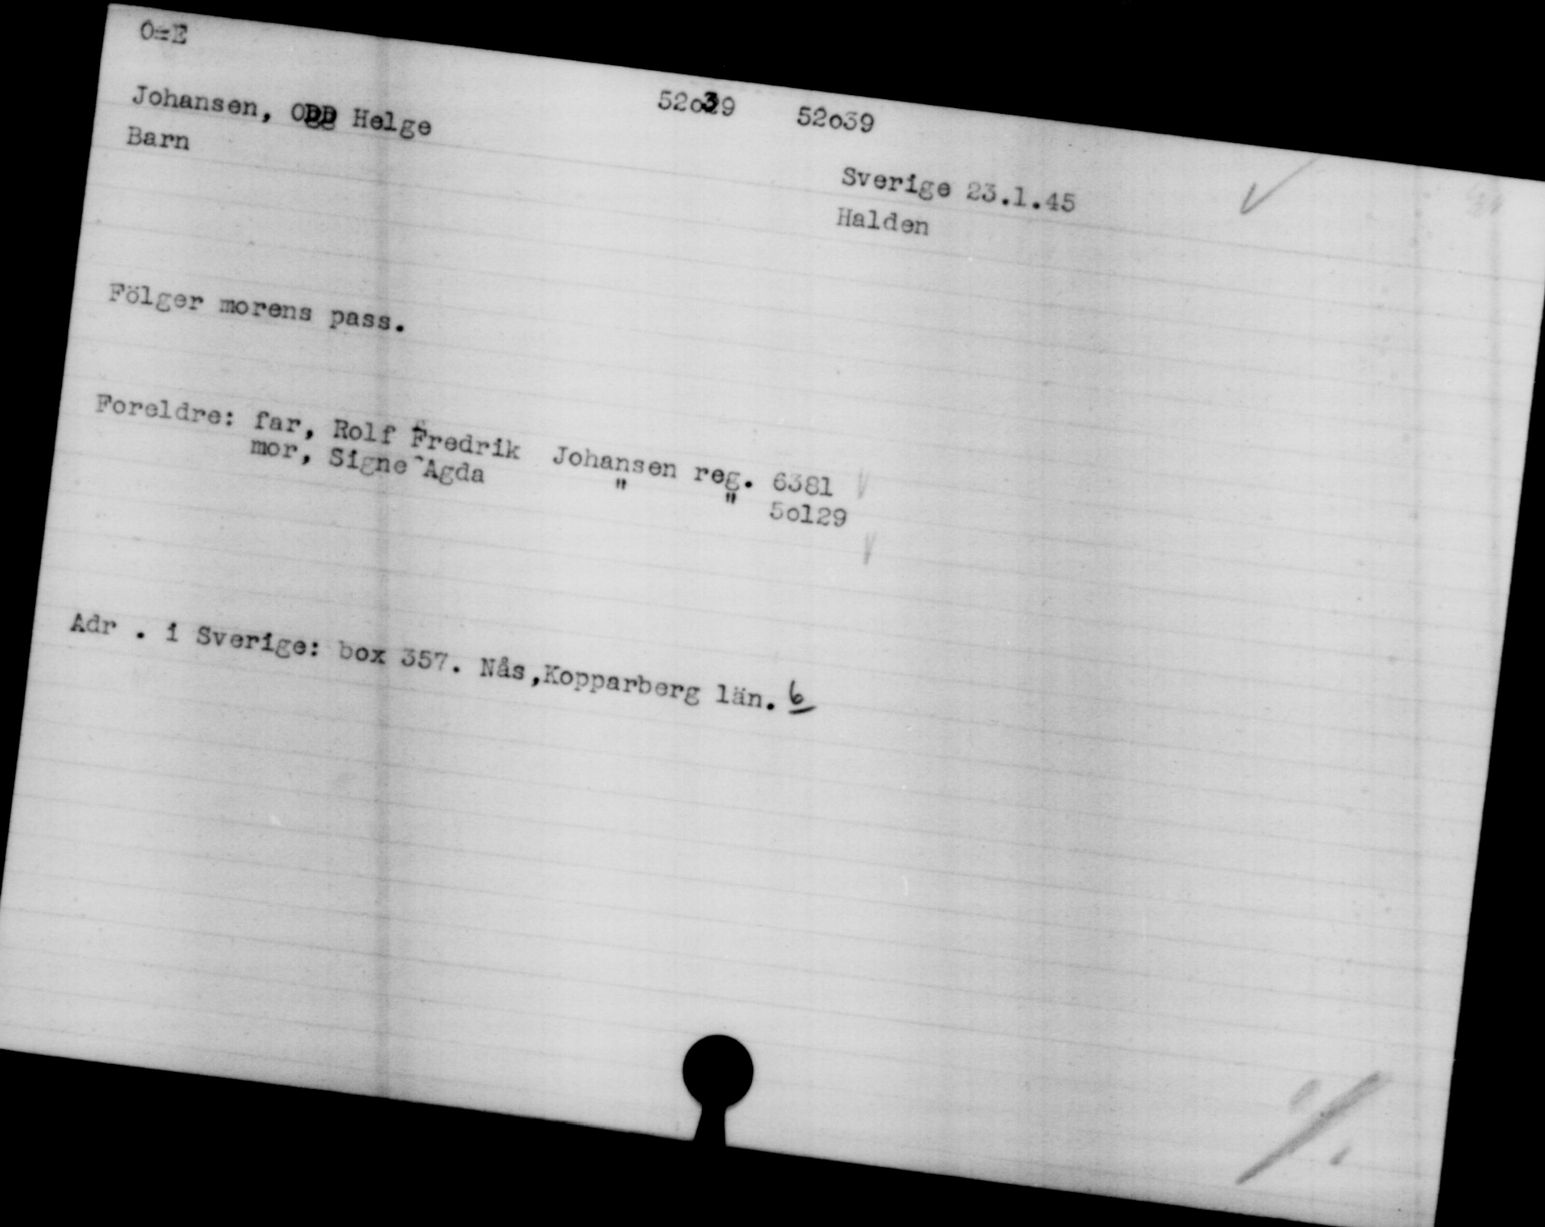 O=E
Johansen, Odd Helge 52o39 52o39
Barn
Sverige 23.1.45
Halden
Fölger morens pass.
Foreldre: far, Rolf Fredrik Johansen reg. 6381
mor, Signe Agda " " 5o129
Adr . i Sverige: box 357. Nås,Kopparberg län. 6